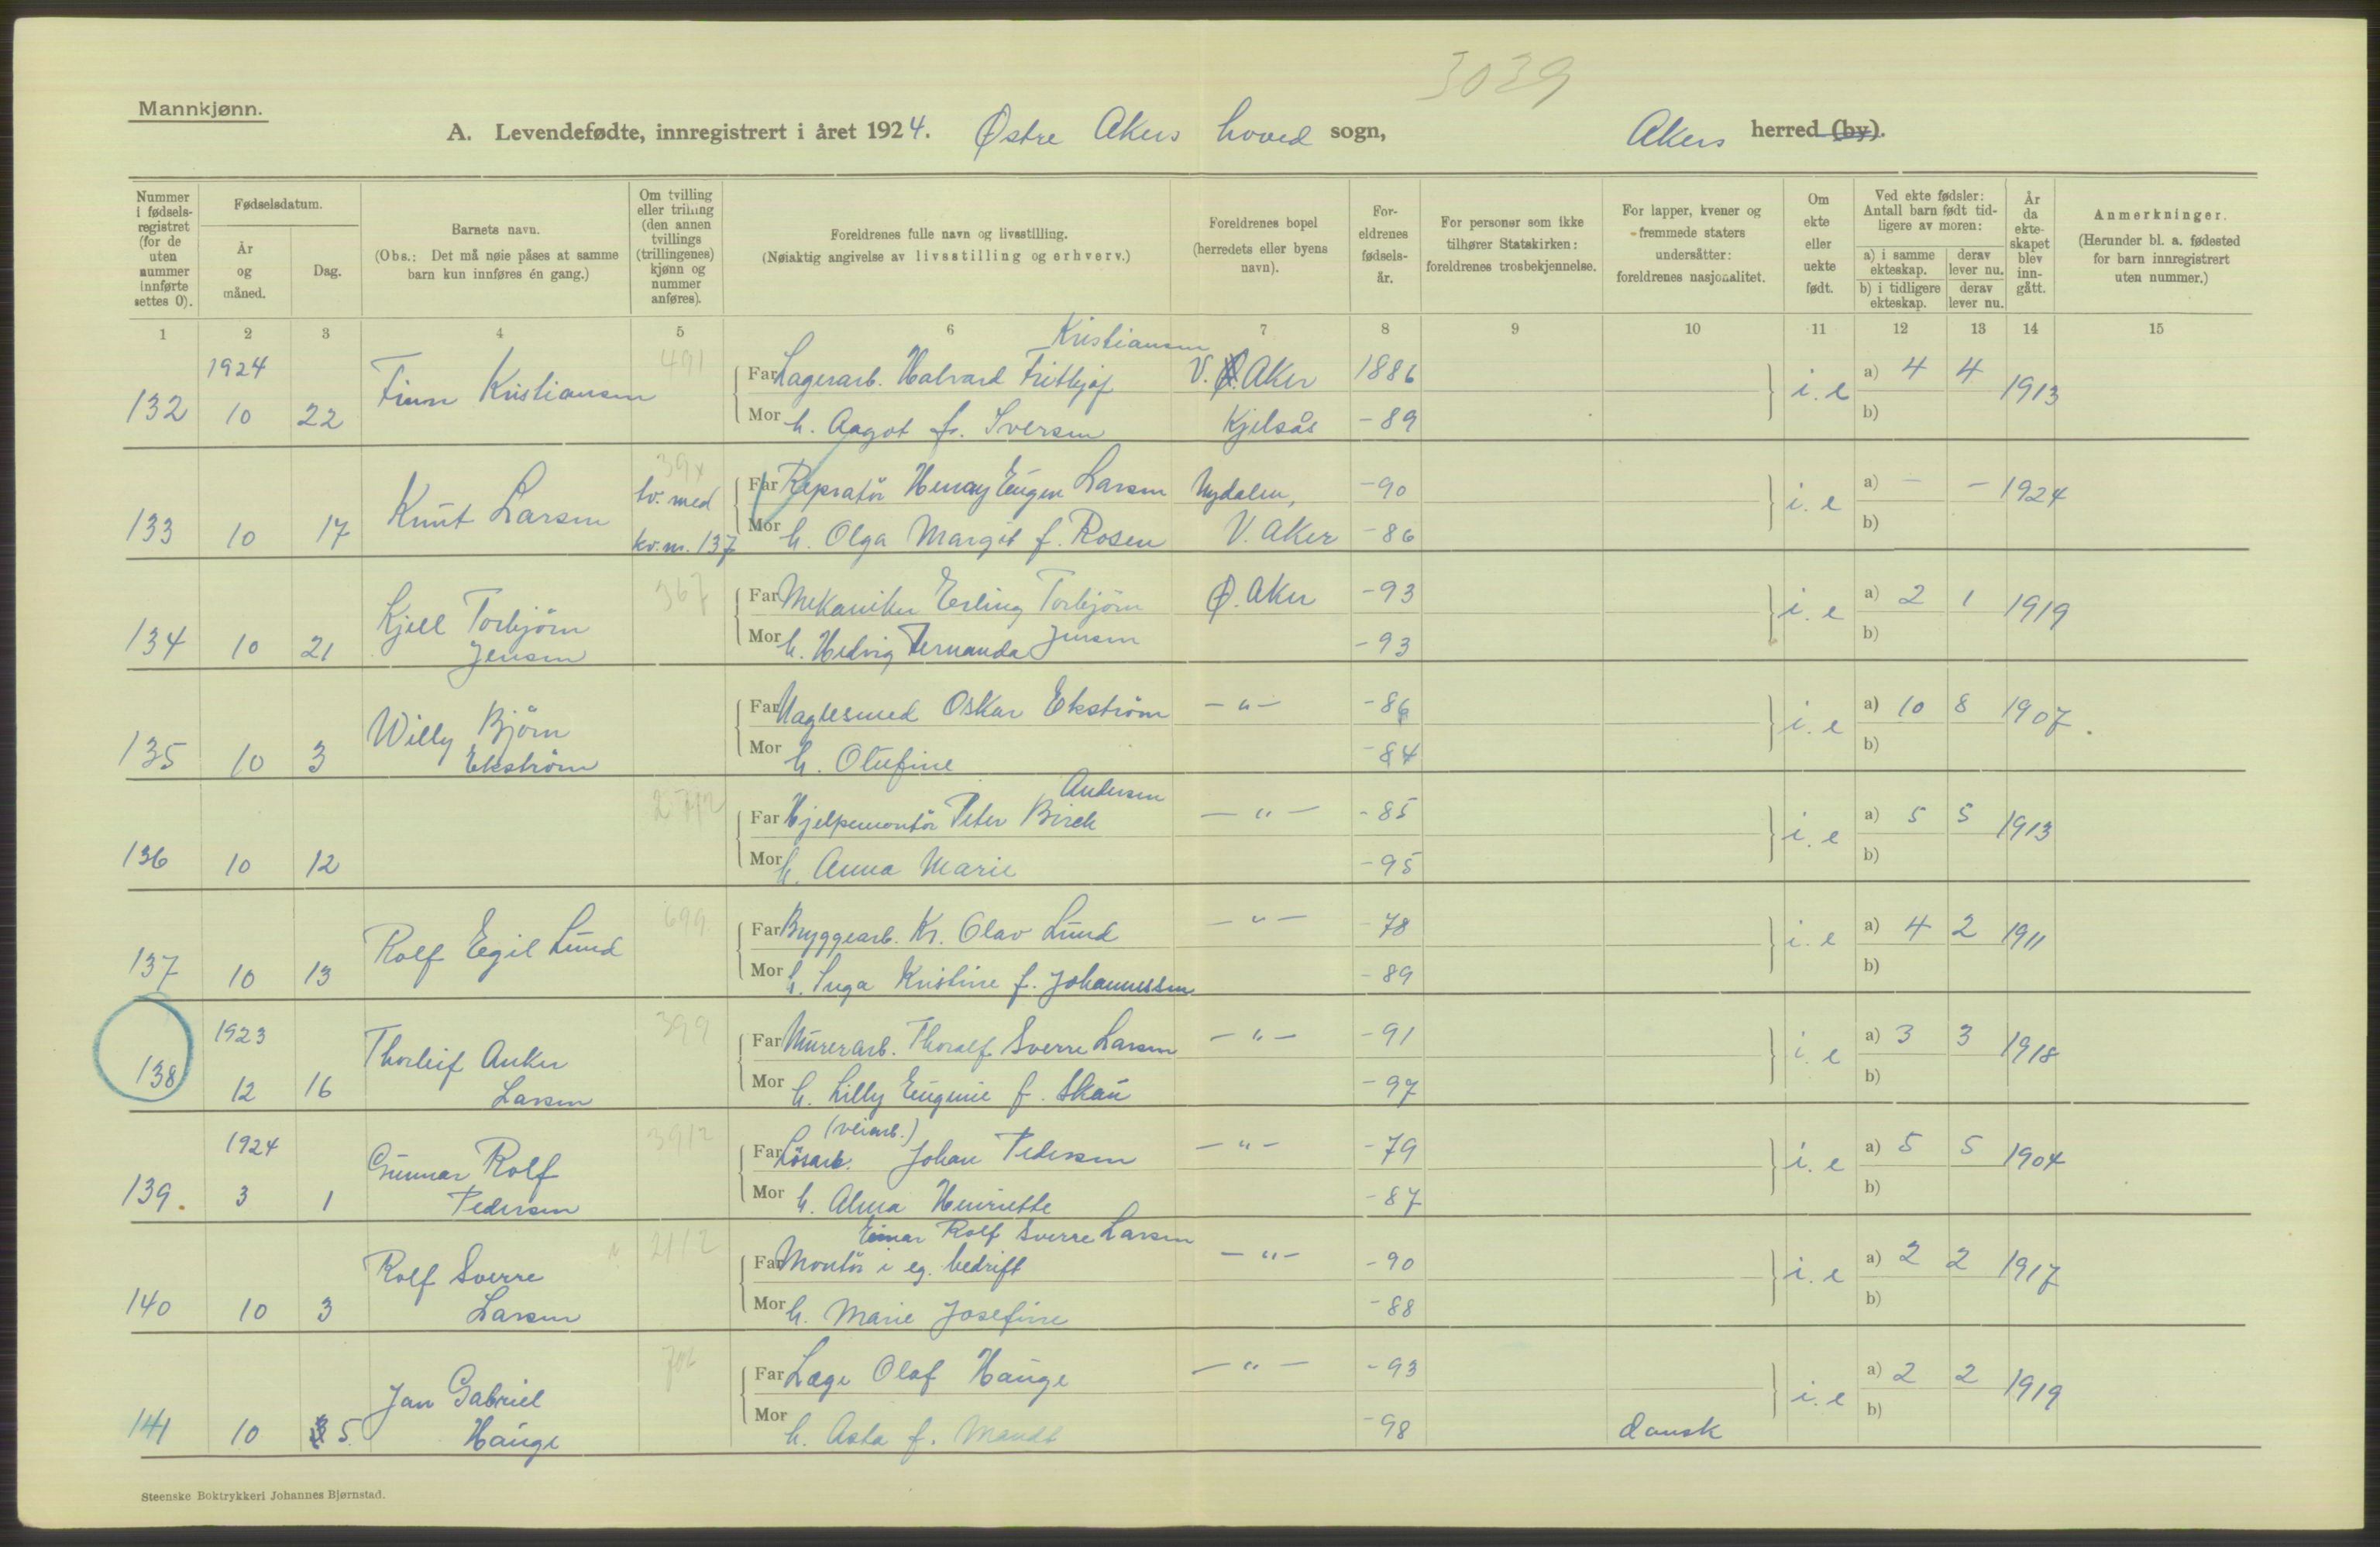 3039
Mannkjønn.
A. Levendefødte, innregistrert i året 1924. Østre Akers hoved sogn, Akers herred (by).
Nummer i fødselsregistret (for de uten nummer innførte settes 0).
Fødselsdatum.
År og måned.
Dag.
Barnets navn.
(Obs.: Det må nøie påses at samme barn kun innføres én gang.)
Om tvilling eller trilling (den annen tvillings (trillingenes) kjønn og nummer anføres).
Foreldrenes fulle navn og livsstilling.
(Nøiaktig angivelse av livsstilling og erhverv.)
Foreldrenes bopel (herredets eller byens navn).
Foreldrenes fødselsår.
For personer som ikke tilhører Statskirken: foreldrenes trosbekjennelse.
For lapper, kvener og fremmede staters undersåtter: foreldrenes nasjonalitet.
Om ekte eller uekte født.
Ved ekte fødsler: Antall barn født tidligere av moren:
a) i samme ekteskap. derav lever nu.
b) i tidligere ekteskap. derav lever nu.
År da ekteskapet blev inngått.
Anmerkninger.
(Herunder bl. a. fødested for barn innregistrert uten nummer.)
1 2 3 4 5 6 7 8 9 10 11 12 13 14 15
Kristiansen
1924 491 Far Lagerarb. Halvard Frithjof V. Ø. Aker 1886 a) 4 4
132 10 22 Finn Kristiansen i. e 1913
Mor h. Aagot f. Iversen Kjelsås -89 b)
394
tv. med Far Repratør Henry Eugen Larsen Nydalen, -90 a) - - 1924
133 10 17 Knut Larsen i. e
kv. nr. 137 Mor h. Olga Margit f. Rosen V. Aker -86 b)
367 Far Mekaniker Erling Torbjörn Ø. Aker -93 a) 2 1
134 10 21 Kjell Torbjörn Jensen i. e 1919
Mor h. Hedvig Fernanda Jensen -93 b)
Far Naglesmed Oskar Ekström - " - -86 a) 10 8
135 10 3 Willy Björn Ekström i. e 1907.
Mor h. Olufine -84 b)
Andersen
2712 Far Hjelpemontör Peter Birch - " - -85 a) 5 5
136 10 12 i. e 1913
Mor h. Anna Marie -95 b)
699 Far Bryggearb. Kr. Olav Lund - " - -78 a) 4 2
137 10 13 Rolf Egil Lund i. e 1911
Mor h. Inga Kristine f. Johannessen -89 b)
1923 399 Far Murerarb. Thoralf Sverre Larsen - " - -91 a) 3 3
138 12 16 Thorleif Anker Larsen i. e 1918
Mor h. Lilly Eugenie f. Skau -97 b)
(veiarb.)
1924 3912 Far Lösarb. Johan Pedersen - " - -79 a) 5 5
139. 3 1 Gunnar Rolf Pedersen i. e 1904
Mor h. Alma Henriette -87 b)
Einar Rolf Sverre Larsen
2112 Far Montör i eg. bedrift - " - -90 a) 2 2
140 10 3 Rolf Sverre Larsen i. e 1917
Mor h. Marie Josefine -88 b)
Far Læge Olaf Hauge - " - -93 a) 2 2
141 10 5. Jan Gabriel Hauge i. e 1919
Mor h. Asta f. Mandt -98 dansk b)
Steenske Boktrykkeri Johannes Bjørnstad.